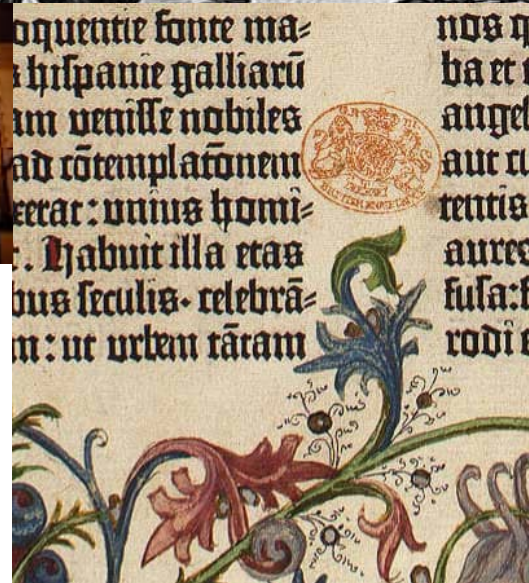 oquentie fonte ma⸗
hispanie galliarū
am venisse nobiles
ad cōtemplatōnem
xerat: unius homi⸗
. Habuit illa etas
bus seculis. celebrā⸗
m: ut urbem tātam
nos
ba et
angel
aut
tentis
aures
fusa:
rodi